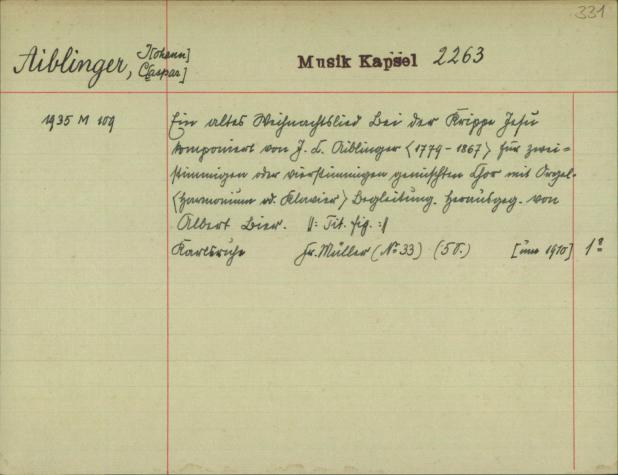 331
Aiblinger, J[ohann] C[aspar]
Musik Kapsel 2263
1935 M 109
Ein altes Weihnachtslied Bei der Krippe Jesu
komponiert von J. C. Aiblinger <1779-1867> für zwei=
stimmigen oder vierstimmigen gemischten Chor mit Orgel-
<Harmonium od. Klavier> Begleitung. Herausgeg. von
Albert Bier. ||: Tit. fig. :||
Karlsruhe Fr. Müller (No 33) (5S.) [um 1910] 1°